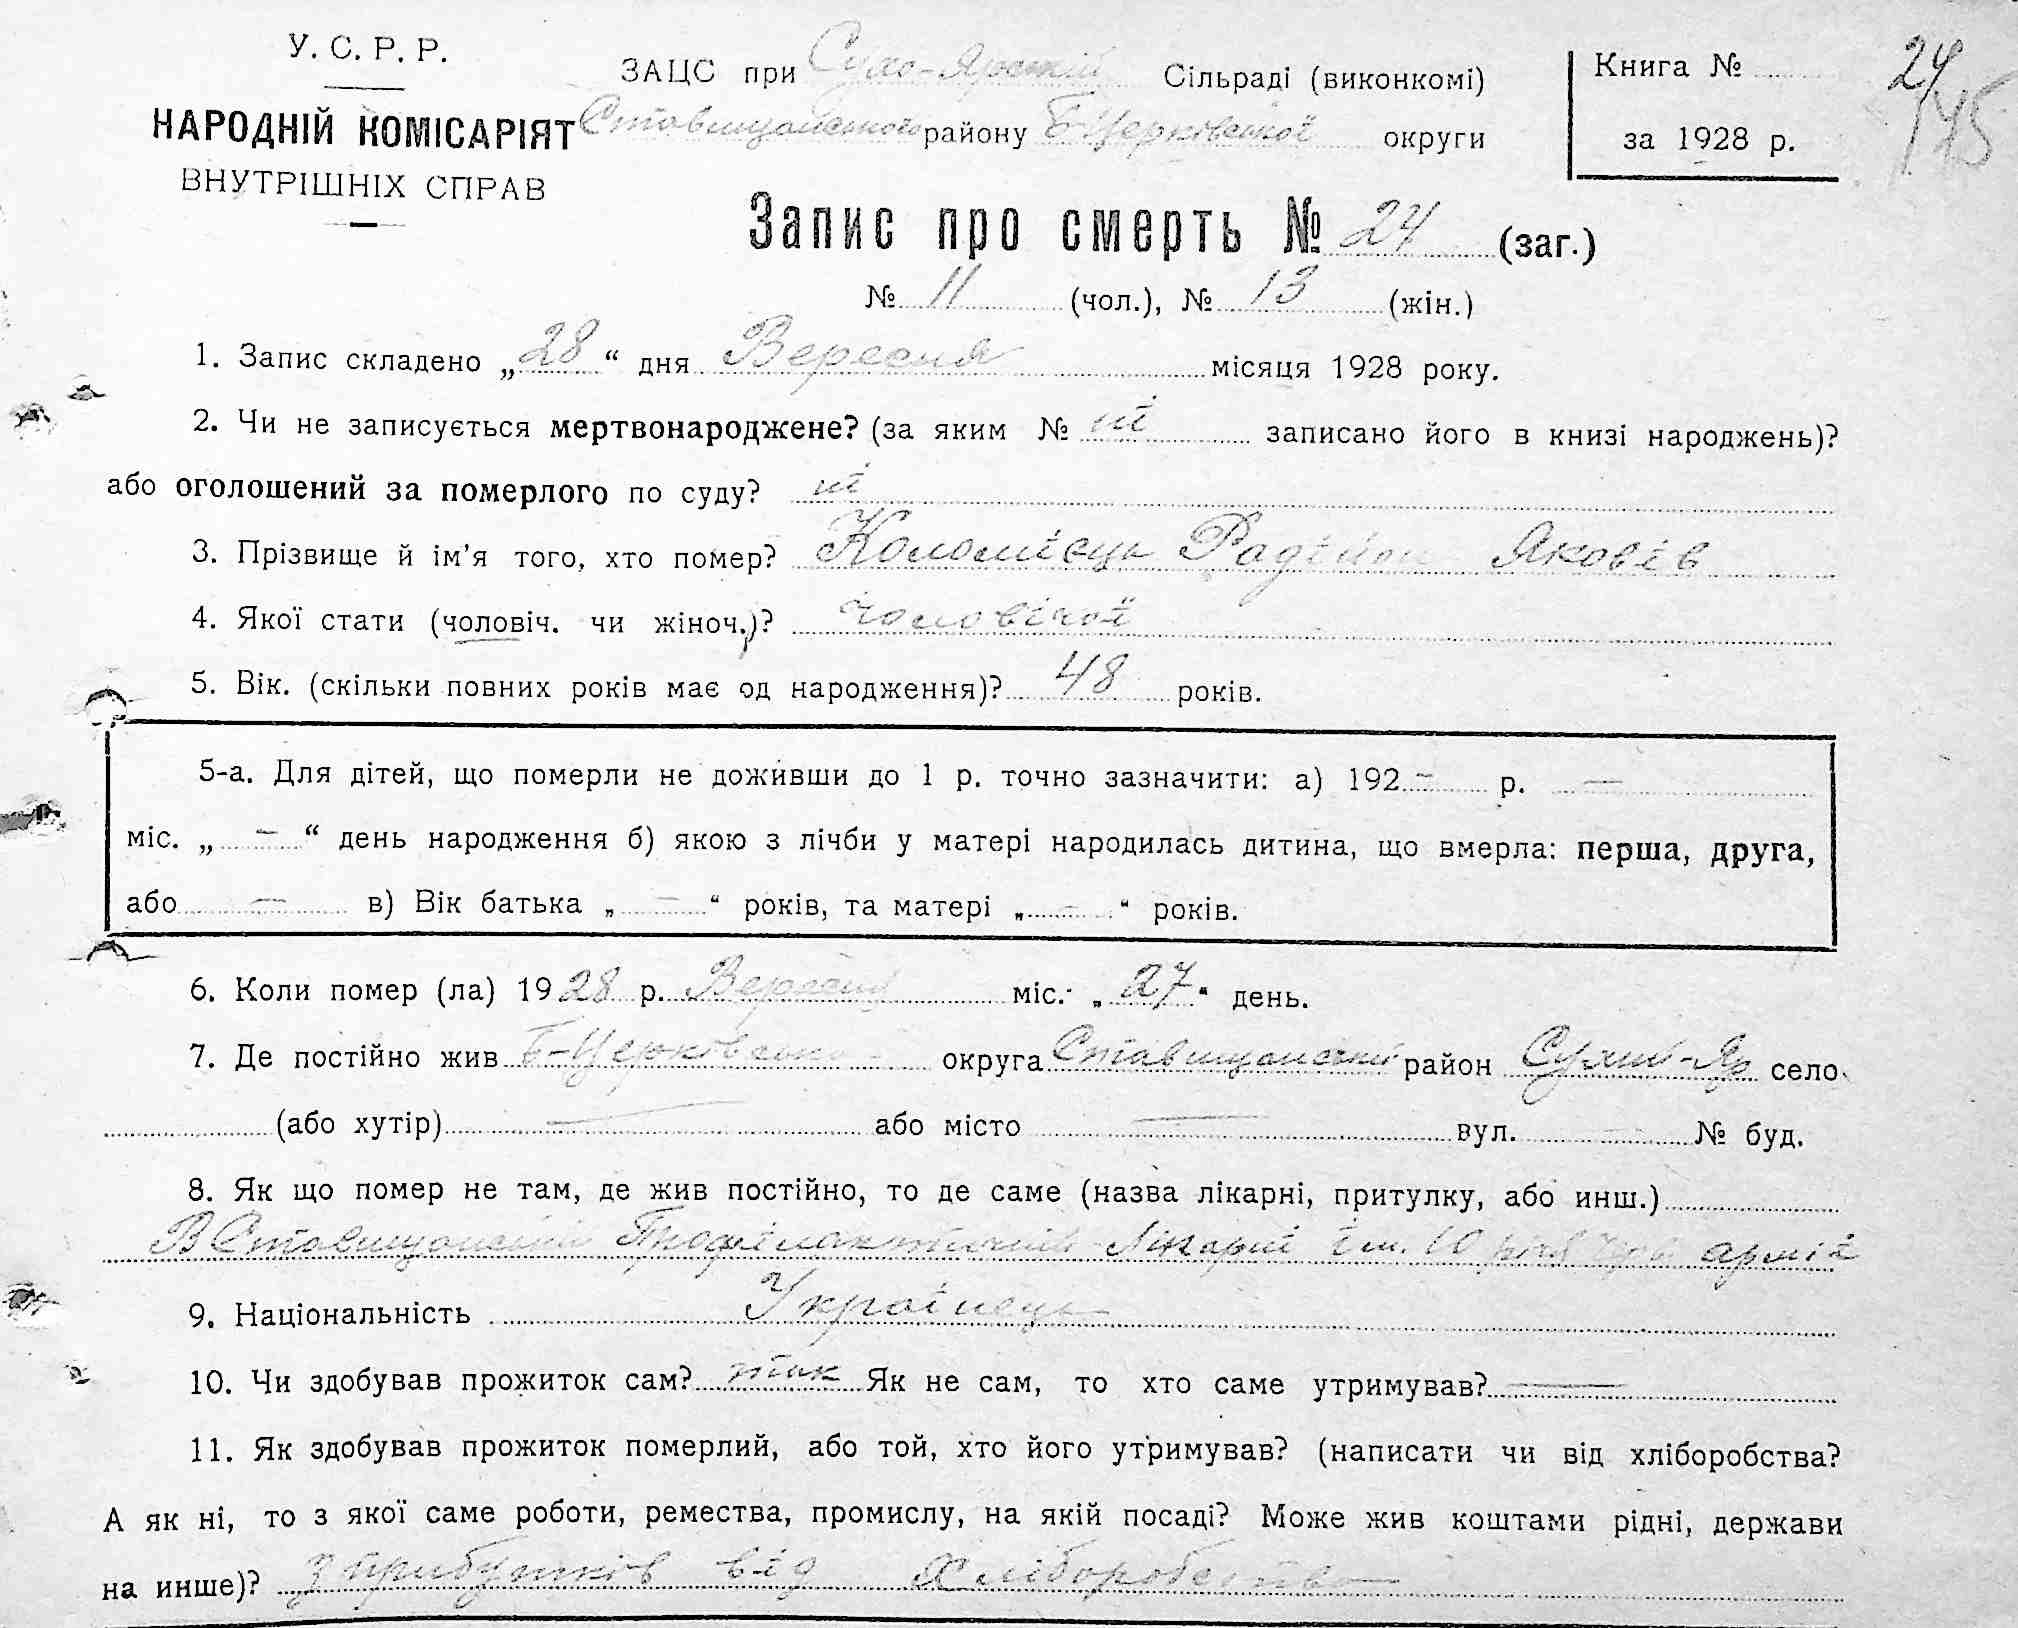 У. С. Р. Р.
НАРОДНІЙ КОМІСАРІЯТ
ВНУТРІШНІХ СПРАВ
ЗАЦС при Сухо-Ярській Сільраді (виконкомі)
Ставищанського району Б-Церківської округи
Книга №
за 1928 р.
24
145
Запис про смерть № 24 (заг.)
№ 11 (чол.), № 13 (жін.)
1. Запис складено „28“ дня Вересня місяця 1928 року.
2. Чи не записується мертвонароджене? (за яким № ні записано його в книзі народжень)?
або оголошений за померлого по суду? ні
3. Прізвище й ім’я того, хто помер? Коломієць Радійон Яковів
4. Якої стати (чоловіч. чи жіноч.)? чоловічої
5. Вік. (скільки повних років має од народження)? 48 років.
5-а. Для дітей, що померли не доживши до 1 р. точно зазначити: а) 192 — р. —
міс. „ — “ день народження б) якою з лічби у матері народилась дитина, що вмерла: перша, друга,
або — в) Вік батька „ — “ років, та матері „ — “ років.
6. Коли помер (ла) 1928 р. Вересня міс. „27“ день.
7. Де постійно жив Б-Церківська округа Ставищанський район Сухий-Яр село
(або хутір) — або місто — вул. — № буд.
8. Як що помер не там, де жив постійно, то де саме (назва лікарні, притулку, або инш.)
В Ставищанській Профілактичній Лікарні ім. 10 річя армії
9. Національність Українець
10. Чи здобував прожиток сам? так Як не сам, то хто саме утримував? —
11. Як здобував прожиток померлий, або той, хто його утримував? (написати чи від хліборобства?
А як ні, то з якої саме роботи, ремества, промислу, на якій посаді? Може жив коштами рідні, держави
на инше)? з прибутків від хліборобства